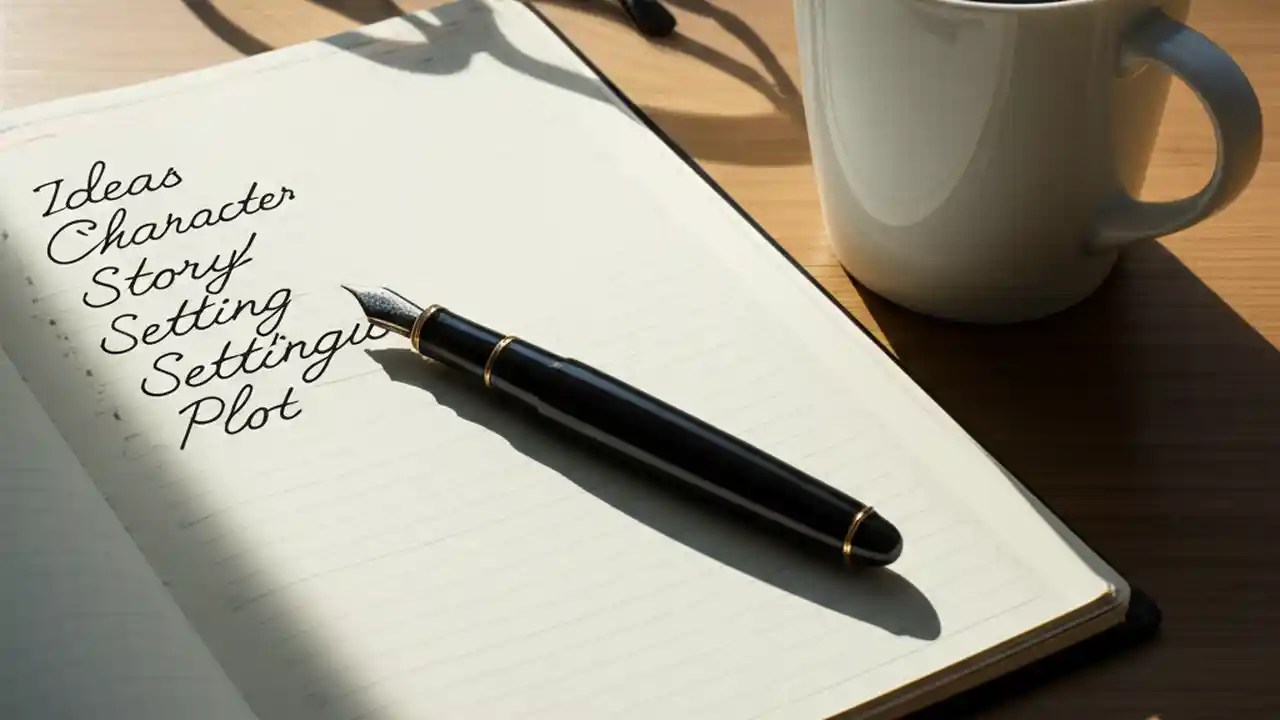 Ideas
Character
Story
Setting
Settingu
Plot